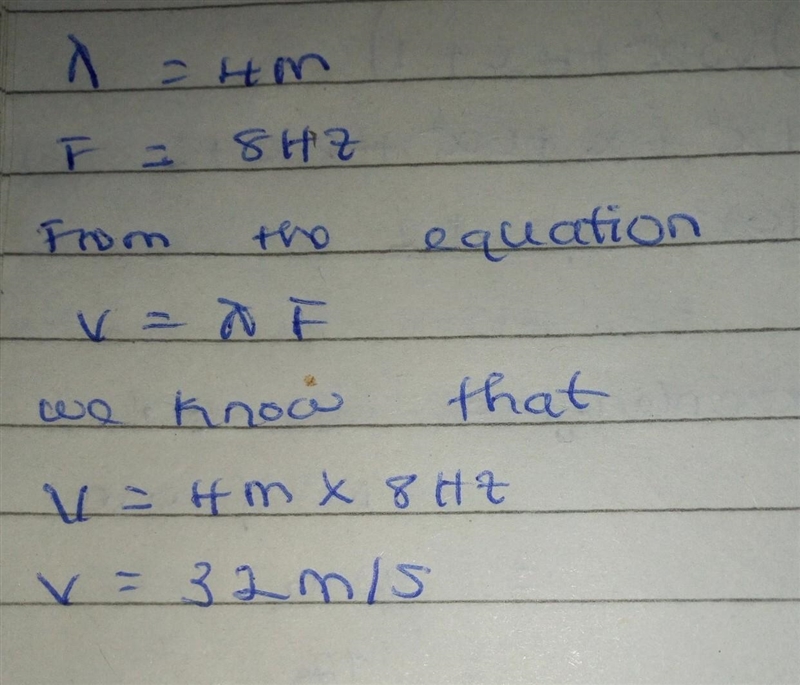 λ = 4m
F = 8Hz
From the equation
V = λ F
we know that
V = 4m × 8Hz
V = 32m/s